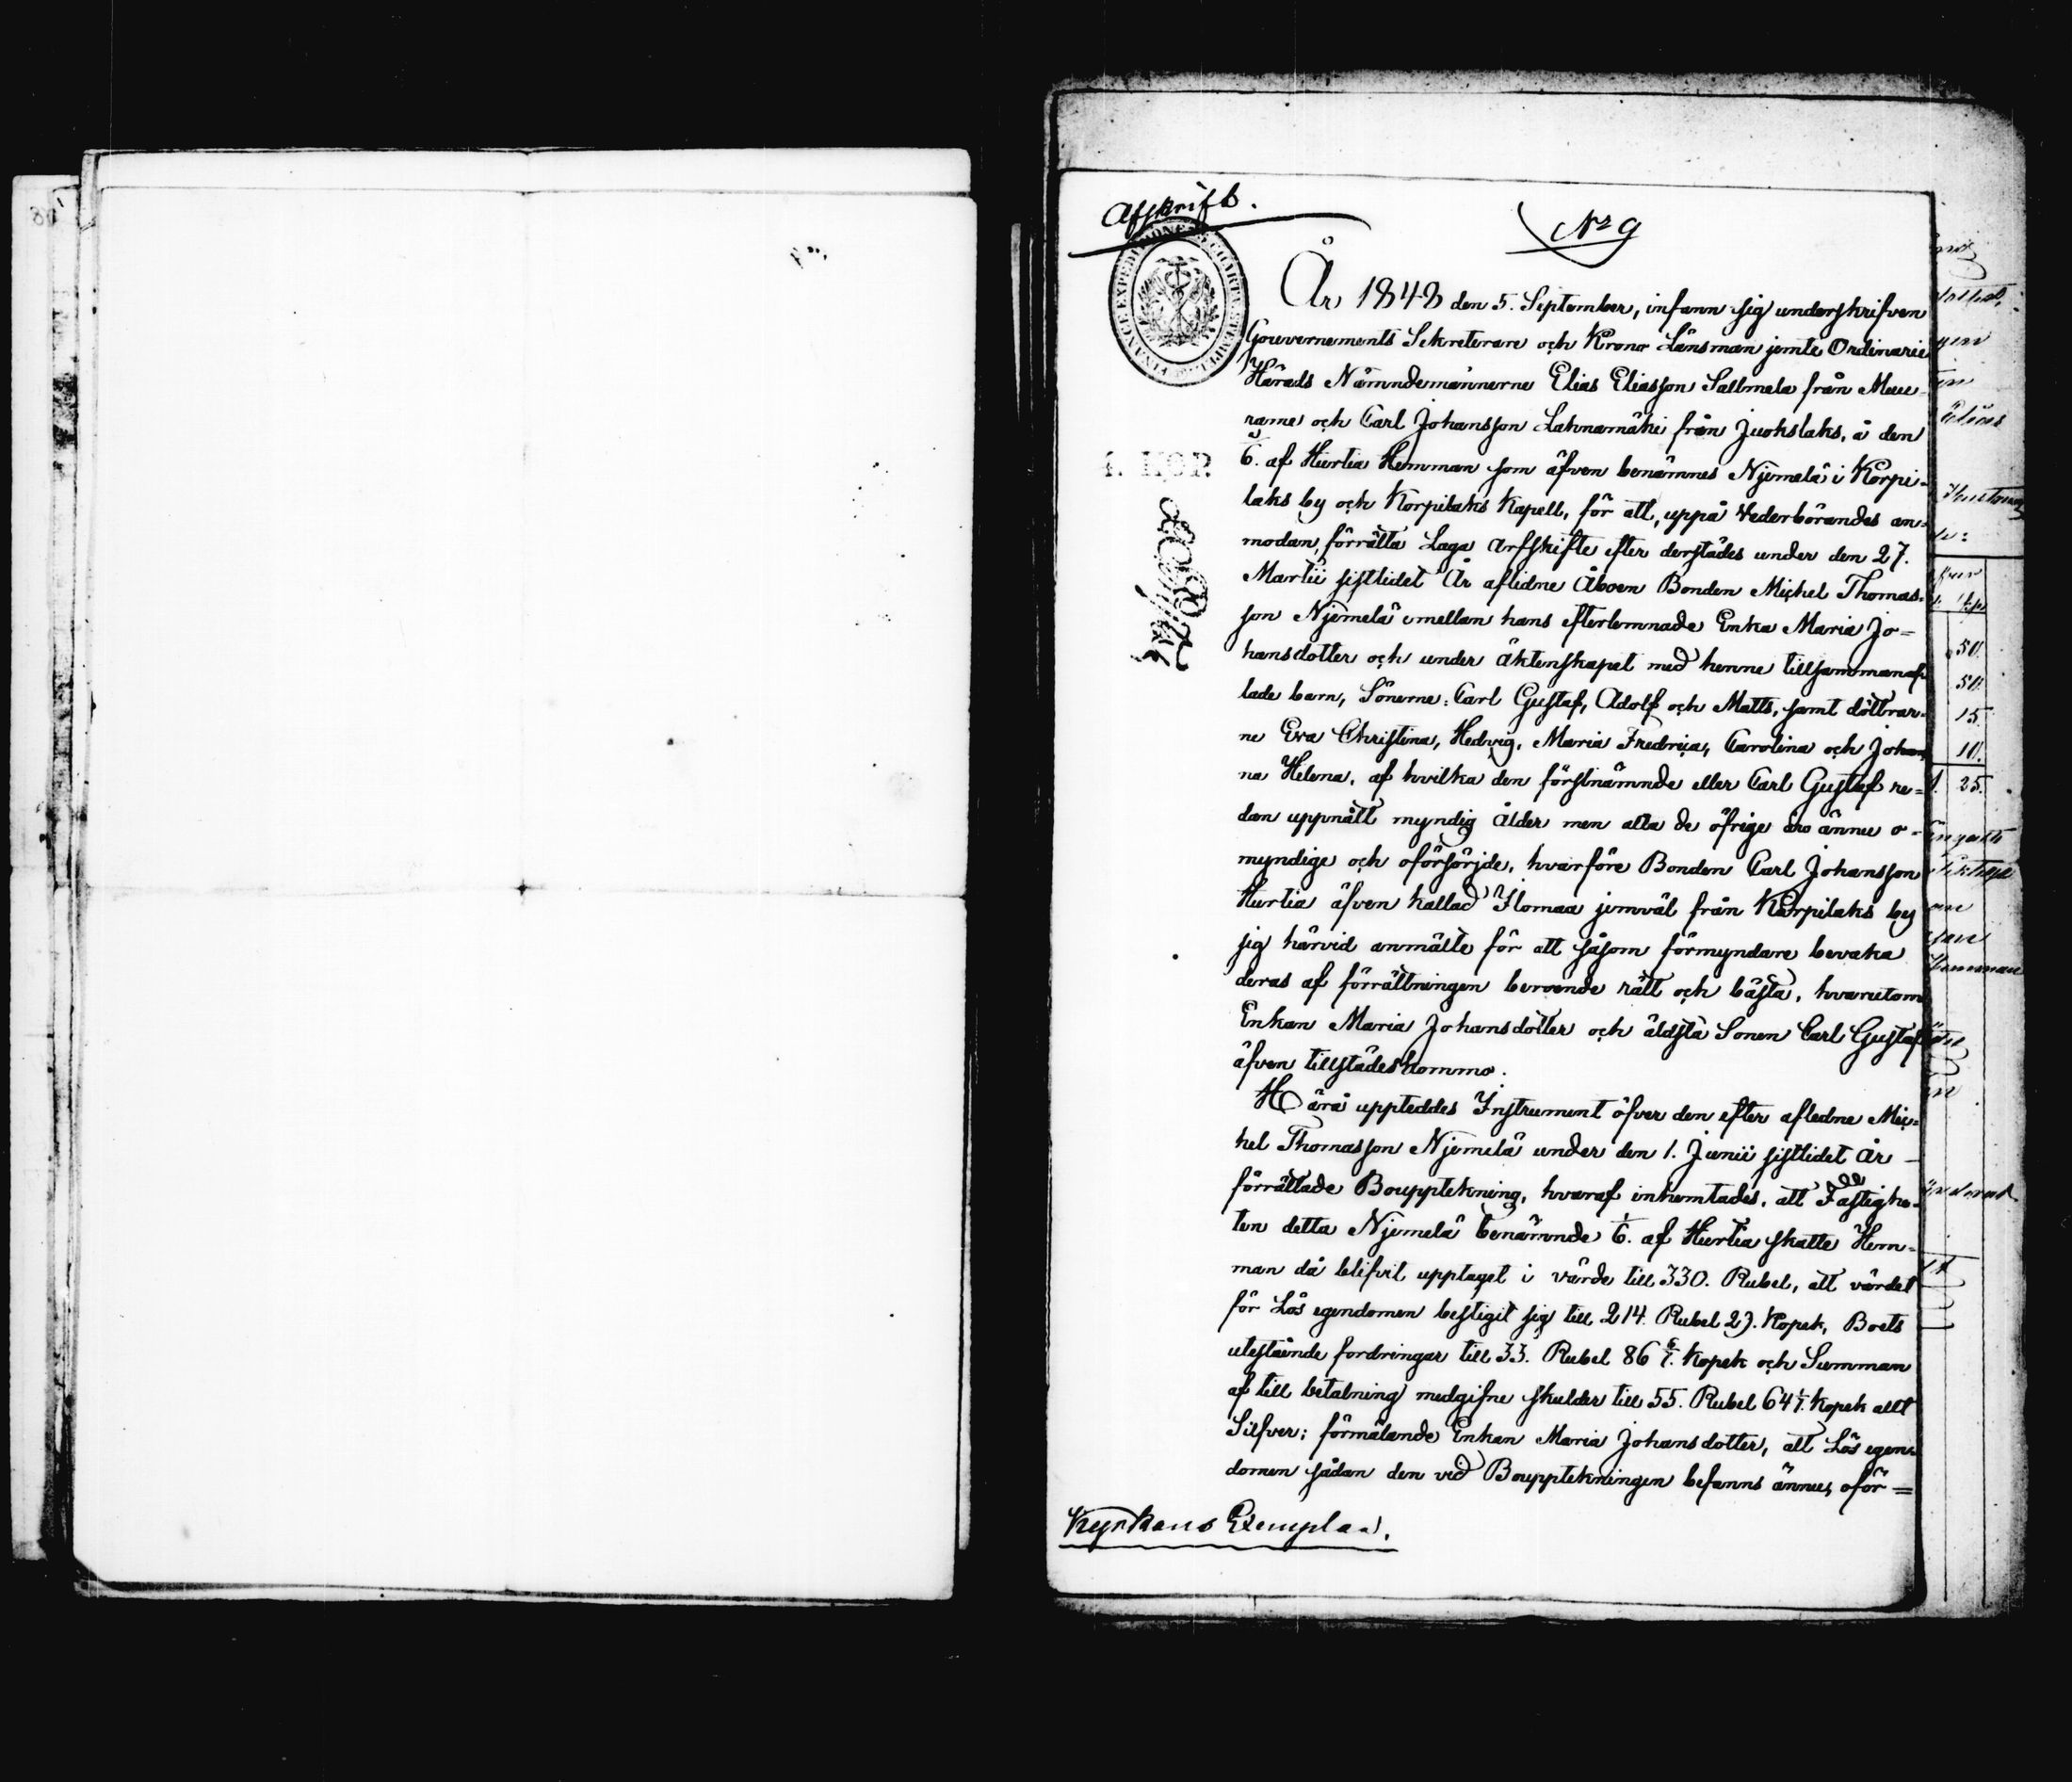 Afskrift.
N:o 9
4. KOP.
År 1848 den 5. September, infann sig underskrifven
Gouvernements Sekreterare och Krono Länsman jemte Ordinarie
Härads Nämndemännerne Elias Eliasson Sallmela från Muu-
rame och Carl Johansson Lahnamäki från Juokslaks, å den
1/6. af Hurtia Hemman som äfven benämnes Njemelä i Korpi-
laks by och Korpilaks Kapell, för att, uppå Vederbörandes an-
modan, förrätta Laga Arfskifte efter derstädes under den 27.
Martii sistlidet År aflidne Åboen Bonden Michel Thomas-
son Njemelä emellan hans efterlemnade Enka Maria Jo-
hansdotter och under äktenskapet med henne tillsammanaf-
lade barn, Sönerne: Carl Gustaf, Adolf och Matts, samt döttrar-
ne Eva Christina, Hedvig, Maria Fredrica, Carolina och Johan-
na Helena, af hvilka den förstnämnde eller Carl Gustaf re-
dan uppnått myndig ålder men alla de öfrige äro ännu o-
myndige och oförsörjde, hvarföre Bonden Carl Johansson
Hurtia äfven kallad Ilomaa jemväl från Korpilaks by
sig härvid anmälte för att såsom förmyndare bevaka
deras af förrättningen beroende rätt och bästa, hvarutom
Enkan Maria Johansdotter och äldsta Sonen Carl Gustaf
äfven tillstädeskommo.
Härå uppteddes Instrument öfver den efter aflidne Mic-
hel Thomasson Njemelä under den 1. Junii sistlidet År
förrättade Bouppteckning, hvaraf inhemtades, att Fastighe-
ten detta Njemelä benämnde 1/6. af Hurtia skatte Hem-
man då blifvit upptaget i värde till 330. Rubel, att värdet
för Lös egendomen bestigit sig till 214. Rubel 27. Kopek, Boets
utestående fordringar till 33. Rubel 86 6/7. Kopek och Summan
af till betalning medgifne skulder till 55. Rubel 64 1/7. Kopek allt
Silfver; förmälande Enkan Maria Johansdotter, att Lös egen-
domen sådan den vid Bouppteckningen befanns ännu, oför-
Kyrkans Exemplar.
50.
50.
15.
10.
25.